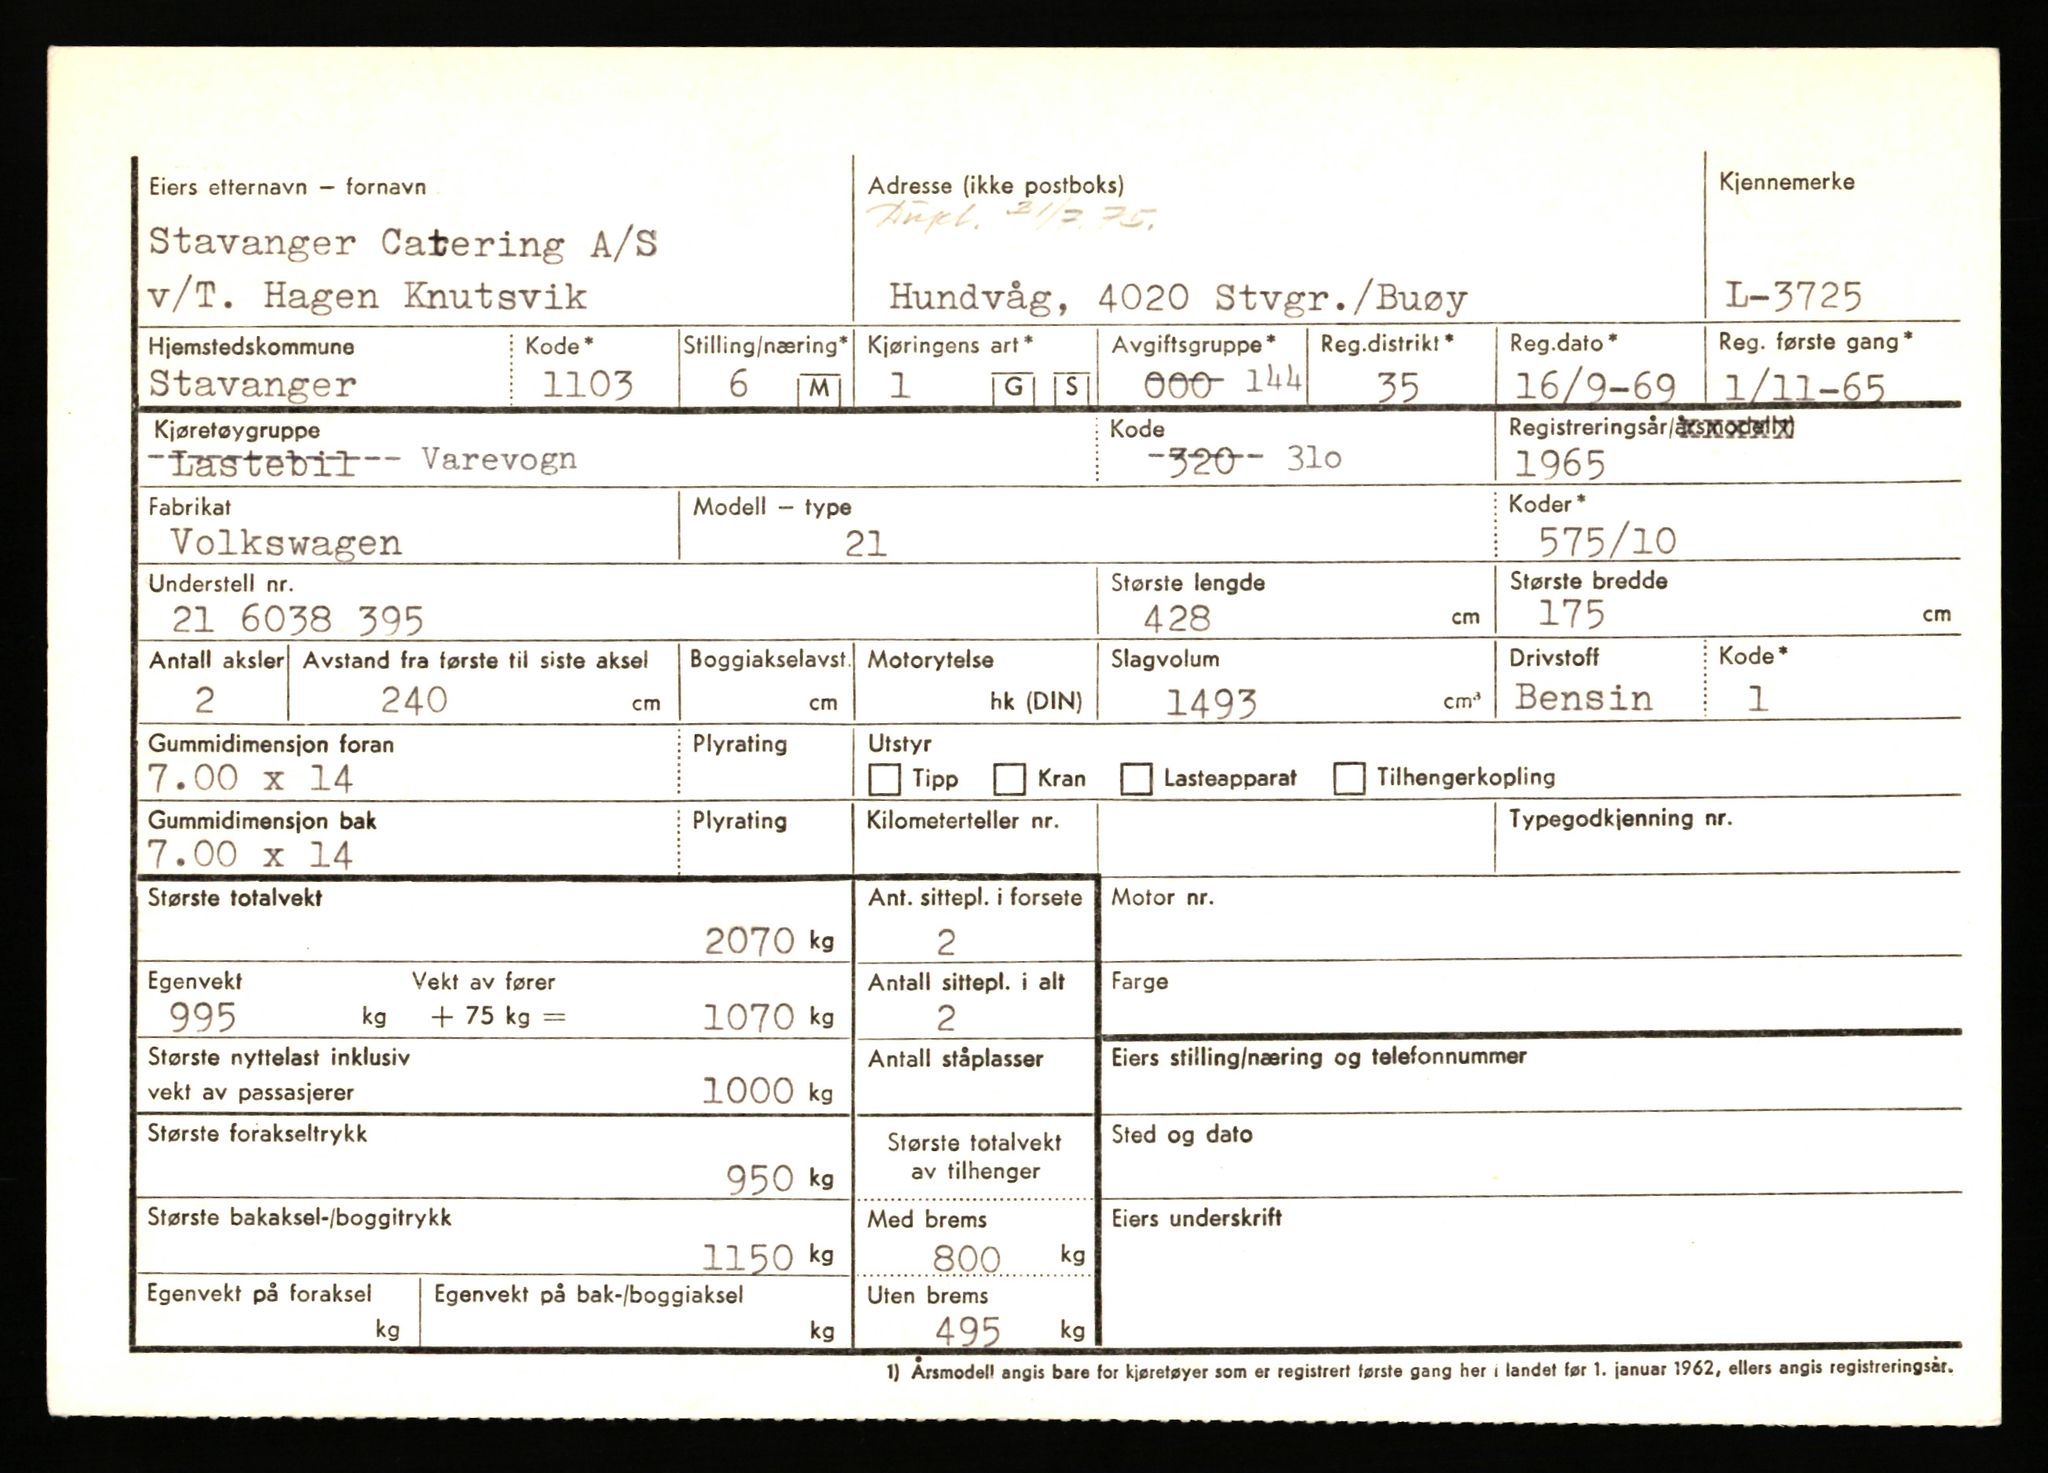 Eiers etternavn – fornavn
Adresse (ikke postboks)
Kjennemerke
Dupl. 21/7.75.
Stavanger Catering A/S
v/T. Hagen Knutsvik
Hundvåg, 4020 Stvgr./Buøy
L-3725
Hjemstedskommune
Kode*
Stilling/næring*
Kjøringens art*
Avgiftsgruppe*
Reg.distrikt*
Reg.dato*
Reg. første gang*
Stavanger
1103
6 M
1 G S
000 144
35
16/9-69
1/11-65
Kjøretøygruppe
Kode
Registreringsår/årsmodell 1)
Lastebil Varevogn
320 31o
1965
Fabrikat
Modell – type
Koder*
Volkswagen
21
575/10
Understell nr.
Største lengde
Største bredde
21 6038 395
428 cm
175 cm
Antall aksler
Avstand fra første til siste aksel
Boggiakselavst.
Motorytelse
Slagvolum
Drivstoff
Kode*
2
240 cm
cm
hk (DIN)
1493 cm³
Bensin
1
Gummidimensjon foran
Plyrating
Utstyr
7.00 x 14
Tipp Kran Lasteapparat Tilhengerkopling
Gummidimensjon bak
Plyrating
Kilometerteller nr.
Typegodkjenning nr.
7.00 x 14
Største totalvekt
Ant. sittepl. i forsete
Motor nr.
2070 kg
2
Egenvekt
Vekt av fører
Antall sittepl. i alt
Farge
995 kg + 75 kg = 1070 kg
2
Største nyttelast inklusiv
vekt av passasjerer
1000 kg
Antall ståplasser
Eiers stilling/næring og telefonnummer
Største forakseltrykk
950 kg
Største totalvekt
av tilhenger
Sted og dato
Største bakaksel-/boggitrykk
1150 kg
Med brems
800 kg
Eiers underskrift
Egenvekt på foraksel
kg
Egenvekt på bak-/boggiaksel
kg
Uten brems
495 kg
1) Årsmodell angis bare for kjøretøyer som er registrert første gang her i landet før 1. januar 1962, ellers angis registreringsår.